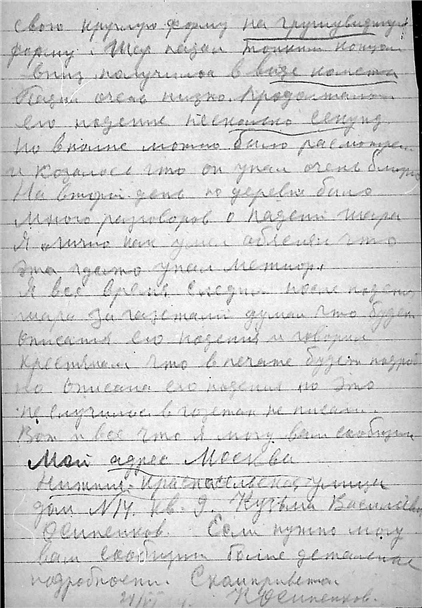 свою круглую форму на грушувидную
форму. Шар падал тонким концом
вниз получилося в виде кометы
Падал очень низко. Продолжалось
его падение несколько секунд
но вполне можно было расмотреть
и козалось что он упал очень близко
На второй день по деревне было
много разговоров о падении шара
Я лично как умел обяснял что
это гдето упал метиор.
Я все время следил после падения
шара за газетами думал что будет
описатся его падения и говорил
крестьянам что в печате будет подроб
но описана его падения но это
не случилось в газетах не писали.
Вот и все что я могу вам сообщить
Мой адрес Москва
Нижния Красносельская улица
дом №14 кв. 9. Кузьма Василивич
Осипенков. Если нужно могу
вам сообщить более детальные
подробности. С ком приветом
К Осипенков.